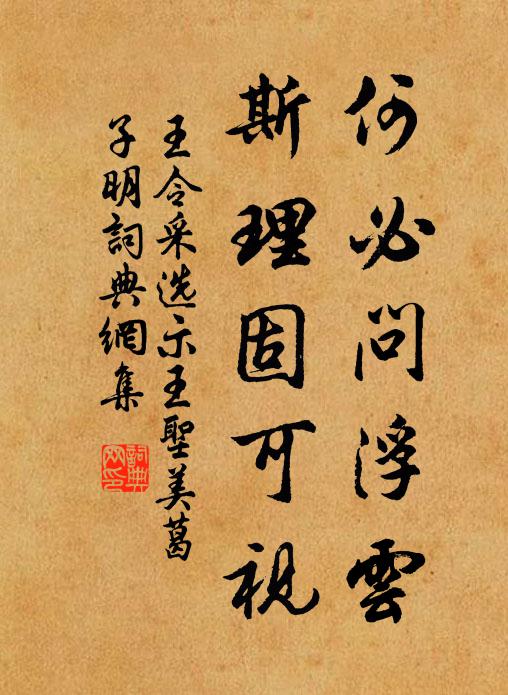 何必問浮雲
斯理固可視
王令采选示王聖美葛
子明詞典網集
詞典
网印